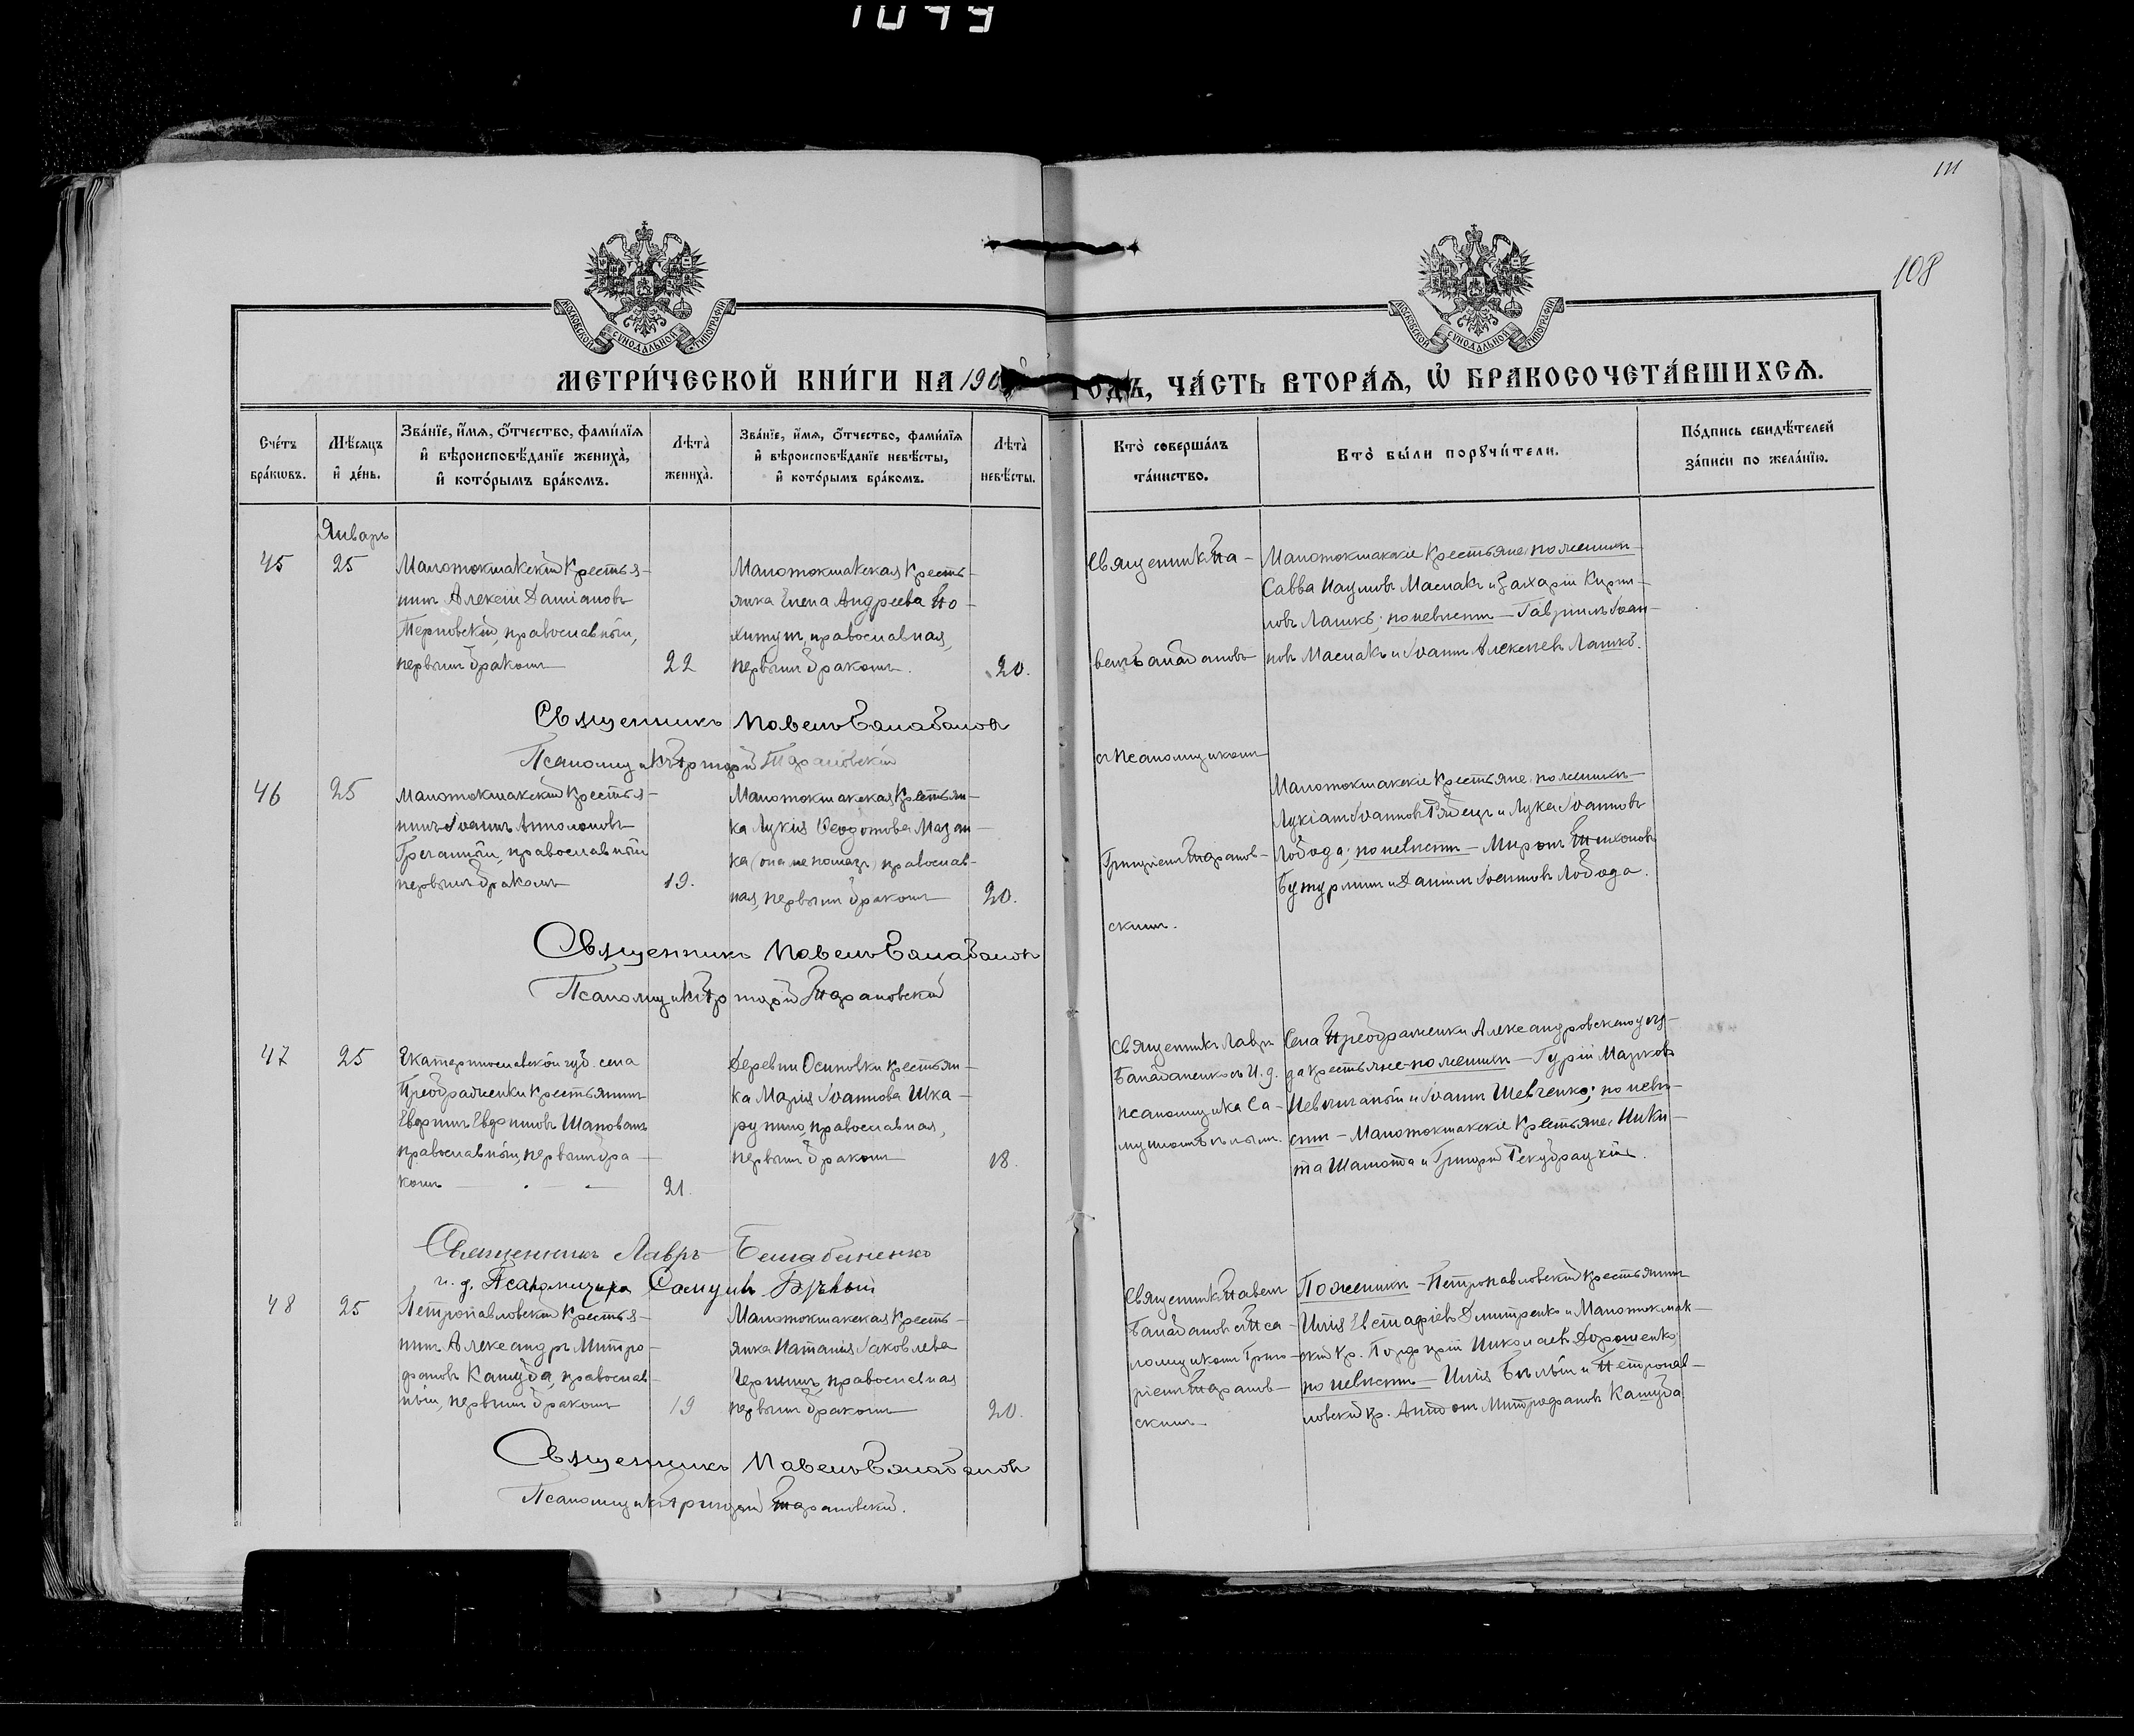 1043
111
108
МОСКОВСКОЙ СѴНОДАЛЬНОЙ ТИПОГРАФІИ
МОСКОВСКОЙ СѴНОДАЛЬНОЙ ТИПОГРАФІИ
МЕТРИ́ЧЕСКОЙ КНИ́ГИ НА 190 ГОДЪ, ЧА́СТЬ ВТОРА́Ѧ, Ѽ БРАКОСОЧЕТА́ВШИХСѦ.
Сче́тъ бра́кѡвъ.
Мѣ́сяцъ и҆ де́нь.
Зва́нїе, и҆́мѧ, ѻ҆́тчество, фами́лїѧ и҆ вѣроисповѣ́данїе жениха̀, и҆ кото́рымъ бра́комъ.
Лѣта̀ жениха̀.
Зва́нїе, и҆́мѧ, ѻ҆́тчество, фами́лїѧ и҆ вѣроисповѣ́данїе невѣ́сты, и҆ кото́рымъ бра́комъ.
Лѣта̀ невѣ́сты.
Кто̀ соверша́лъ та́инство.
Кто̀ бы́ли порꙋчи́тели.
По́дпись свидѣ́телей за́писи по жела́нїю.
Январь
45
25
Малотокмакскій крестья-
нинъ Алексій Даміановъ
Терновскій, православный,
первымъ бракомъ
22
Малотокмакская кресть-
янка Елена Андреева По-
хитунъ, православная,
первымъ бракомъ.
20.
Священникъ Па-
велъ Балабановъ
съ Псаломщикомъ
Григоріемъ Таранов-
скимъ.
Малотокмакскіе крестьяне: по женихѣ
Савва Наумовъ Маслакъ и Захарій Кирил-
ловъ Лашкъ; по невѣстѣ – Гавріилъ Іоан-
новъ Маслакъ и Іоаннъ Алексѣевъ Лашкъ.
Священникъ Павелъ Балабановъ
Псаломщикъ Григорій Тарановскій
46
25
Малотокмакскій крестья-
нинъ Іоаннъ Антоновъ
Гречаный, православный
первымъ бракомъ
19.
Малотокмакская крестьян-
ка Лукія Ѳеодотова Мазан-
ка (она не помазъ) православ-
ная, первымъ бракомъ
20.
Малотокмакскіе крестьяне: по женихѣ
Лукіанъ Іоанновъ Рядецъ и Лука Іоанновъ
Лобода; по невѣстѣ – Миронъ Тихоновъ
Бутурлимъ и Даніилъ Іоанновъ Лобода.
Священникъ Павелъ Балабановъ
Псаломщикъ Григорій Тарановскій
47
25
Екатеринославской губ. села
Преображенки крестьянинъ
Евфимъ Евфимовъ Шаповалъ
православный, первымъ бра-
комъ
21.
Деревни Осиповки крестьян-
ка Марія Іоаннова Шка-
рупина, православная,
первымъ бракомъ
18.
Священникъ Лавръ
Балабаненко съ И. д.
псаломщика Са-
муиломъ Бѣлымъ.
Села Преображенки Александровскаго уѣз-
да крестьяне – по женихѣ – Гурій Марковъ
Невѣнчаный и Іоаннъ Шевченко; по невѣ-
стѣ – Малотокмакскіе крестьяне: Ники-
та Шамота и Григорій Рекубрацкій.
Священникъ Лавръ Балабаненко
и. д. Псаломщика Самуилъ Бѣлый
48
25
Петропавловскій крестья-
нинъ Александръ Митро-
фановъ Кашуба, православ-
ный, первымъ бракомъ
19
Малотокмакская кресть-
янка Наталія Іаковлева
Черныхъ, православная
первымъ бракомъ
20.
Священникъ Павелъ
Балабановъ съ Пса-
ломщикомъ Григо-
ріемъ Таранов-
скимъ
По женихѣ – Петропавловскій крестьянинъ
Илія Евстафіевъ Дмитренко и Малотокмак-
скій кр. Порфирій Николаевъ Дорошенко;
по невѣстѣ – Илія Бѣлый и Петропав-
ловскій кр. Антонъ Митрофановъ Кашуба
Священникъ Павелъ Балабановъ
Псаломщикъ Григорій Тарановскій.